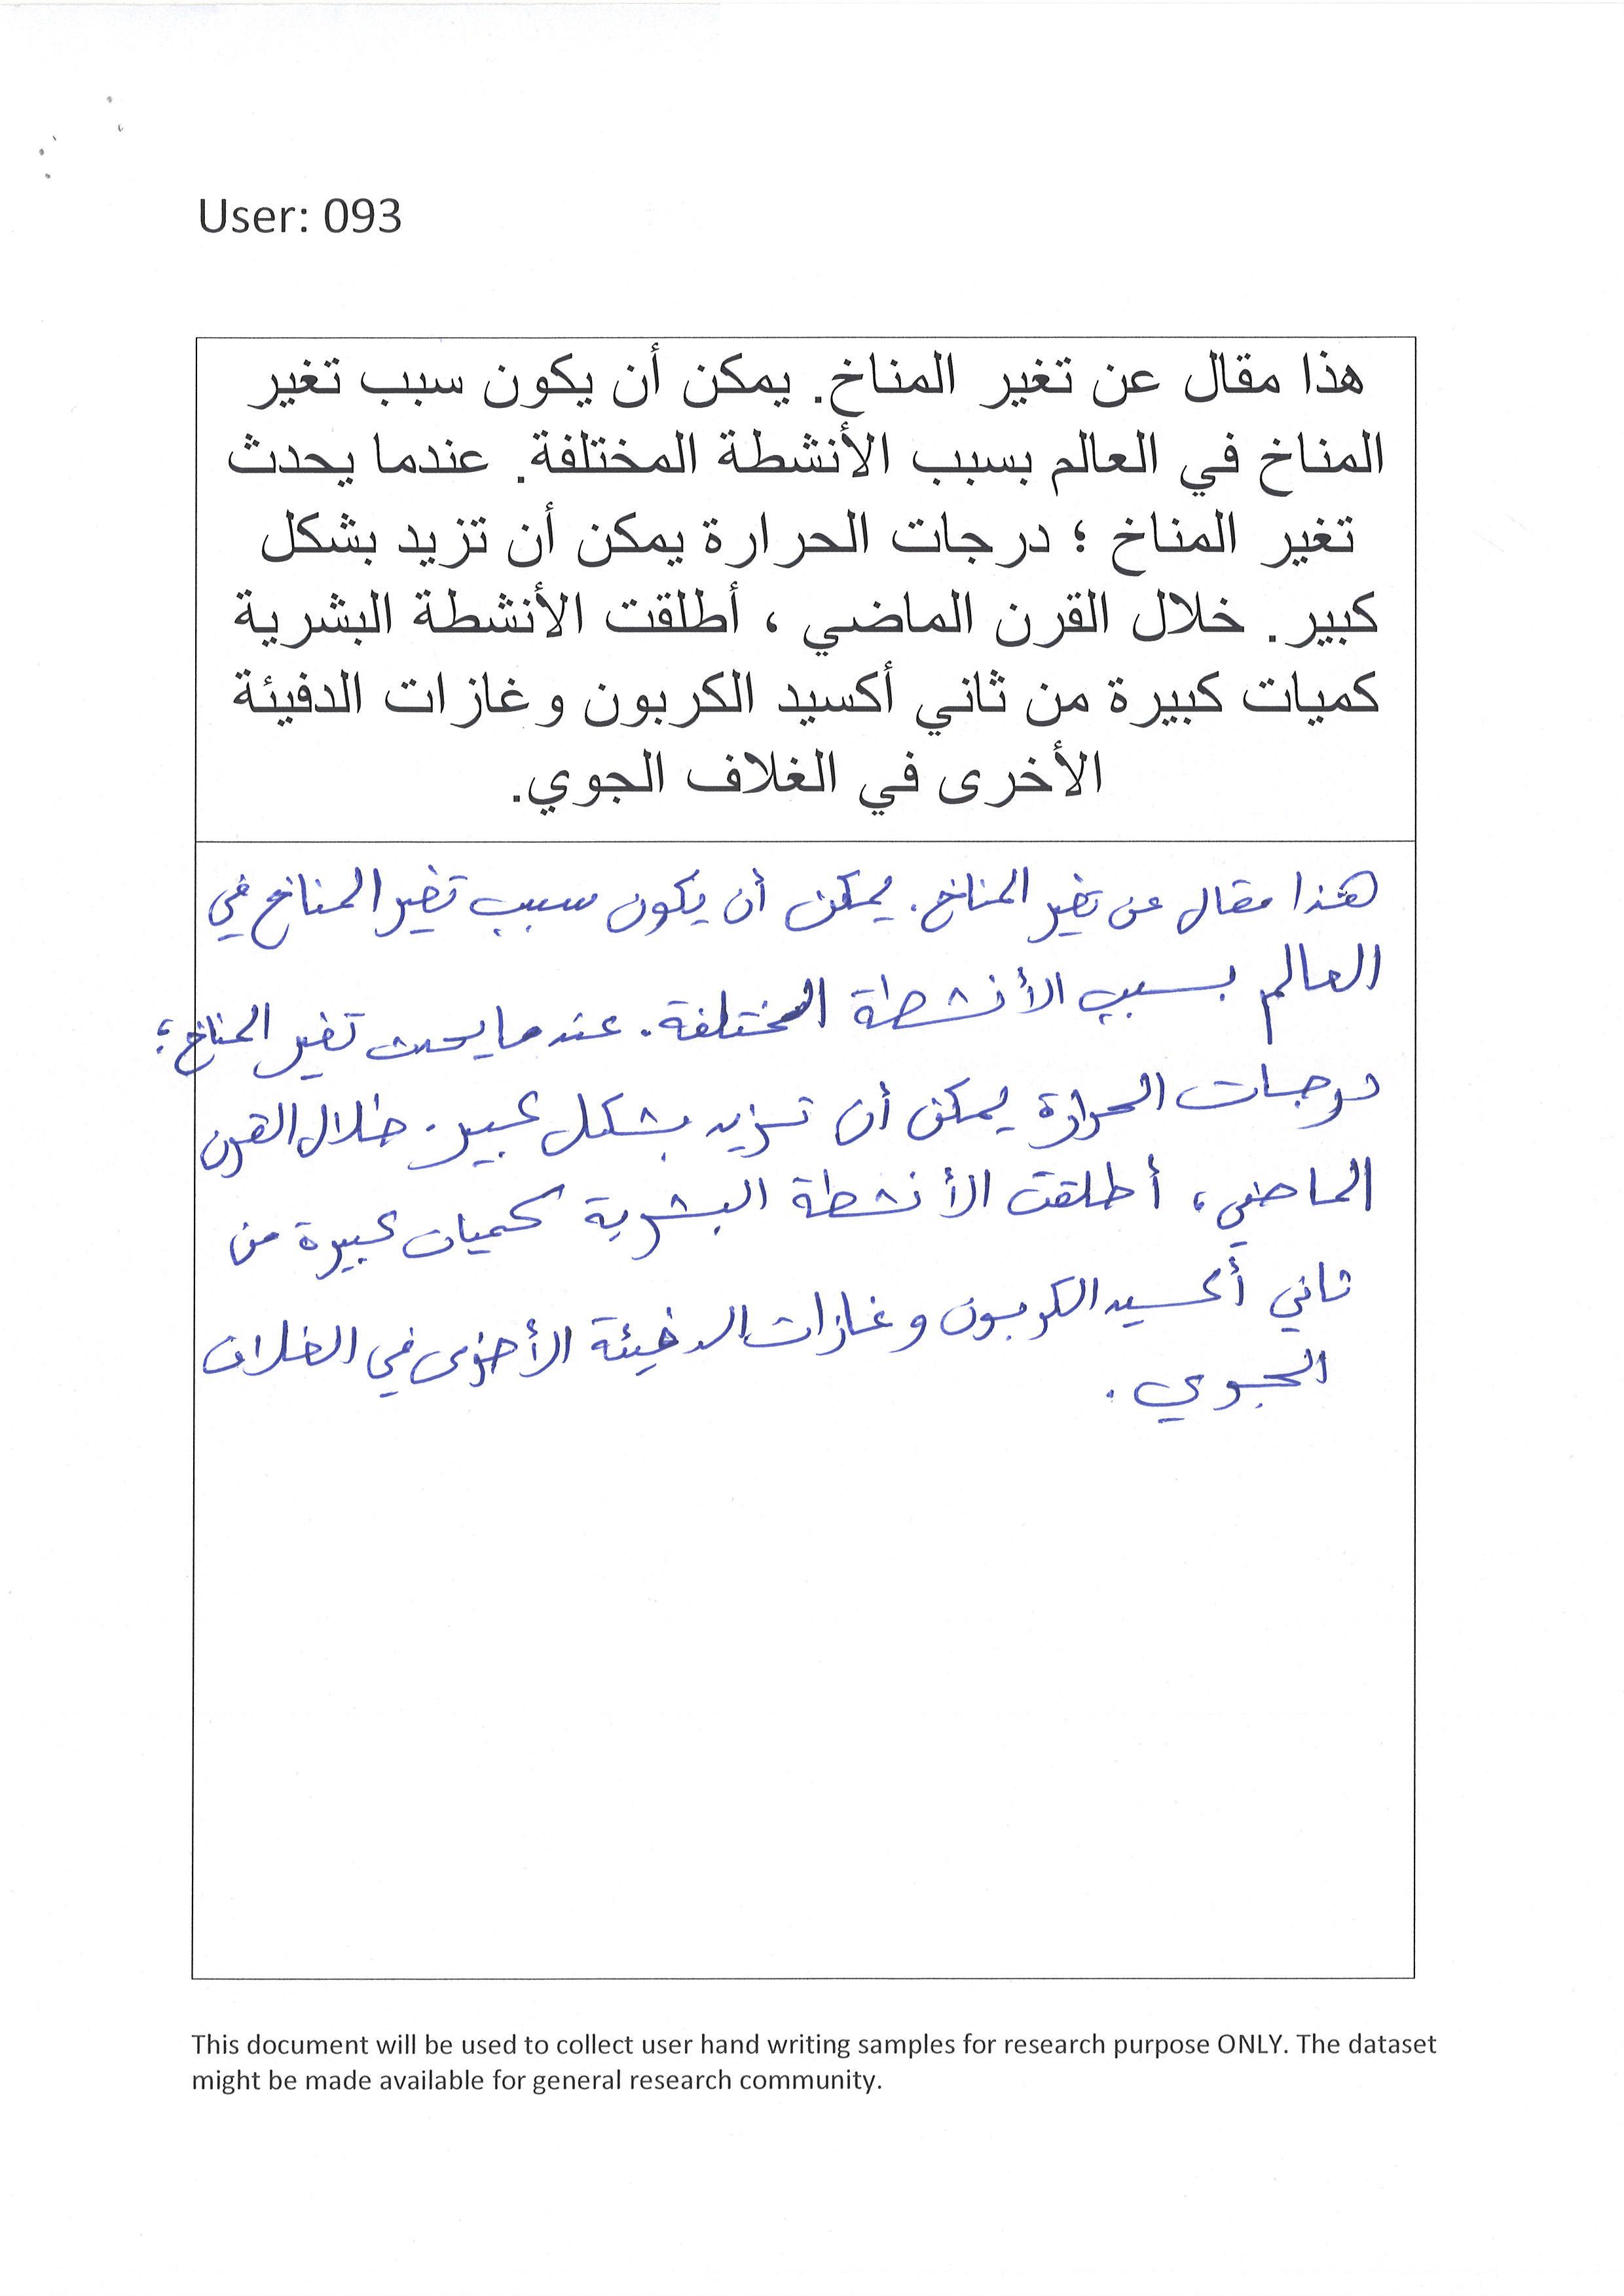 User: 093
هذا مقال عن تغير المناخ. يمكن أن يكون سبب تغير
المناخ في العالم بسبب الأنشطة المختلفة. عندما يحدث
تغير المناخ ؛ درجات الحرارة يمكن أن تزيد بشكل
كبير. خلال القرن الماضي ، أطلقت الأنشطة البشرية
كميات كبيرة من ثاني أكسيد الكربون وغازات الدفيئة
الأخرى في الغلاف الجوي.
هذا مقال عن تغير المناخ. يمكن أن يكون سبب تغير المناخ في
العالم بسبب الأنشطة المختلفة. عندما يحدث تغير المناخ؛
درجات الحرارة يمكن أن تزيد بشكل كبير. خلال القرن
الماضي، أطلقت الأنشطة البشرية كميات كبيرة من
ثاني أكسيد الكربون وغازات الدفيئة الأخرى في الغلاف
الجوي.
This document will be used to collect user hand writing samples for research purpose ONLY. The dataset
might be made available for general research community.